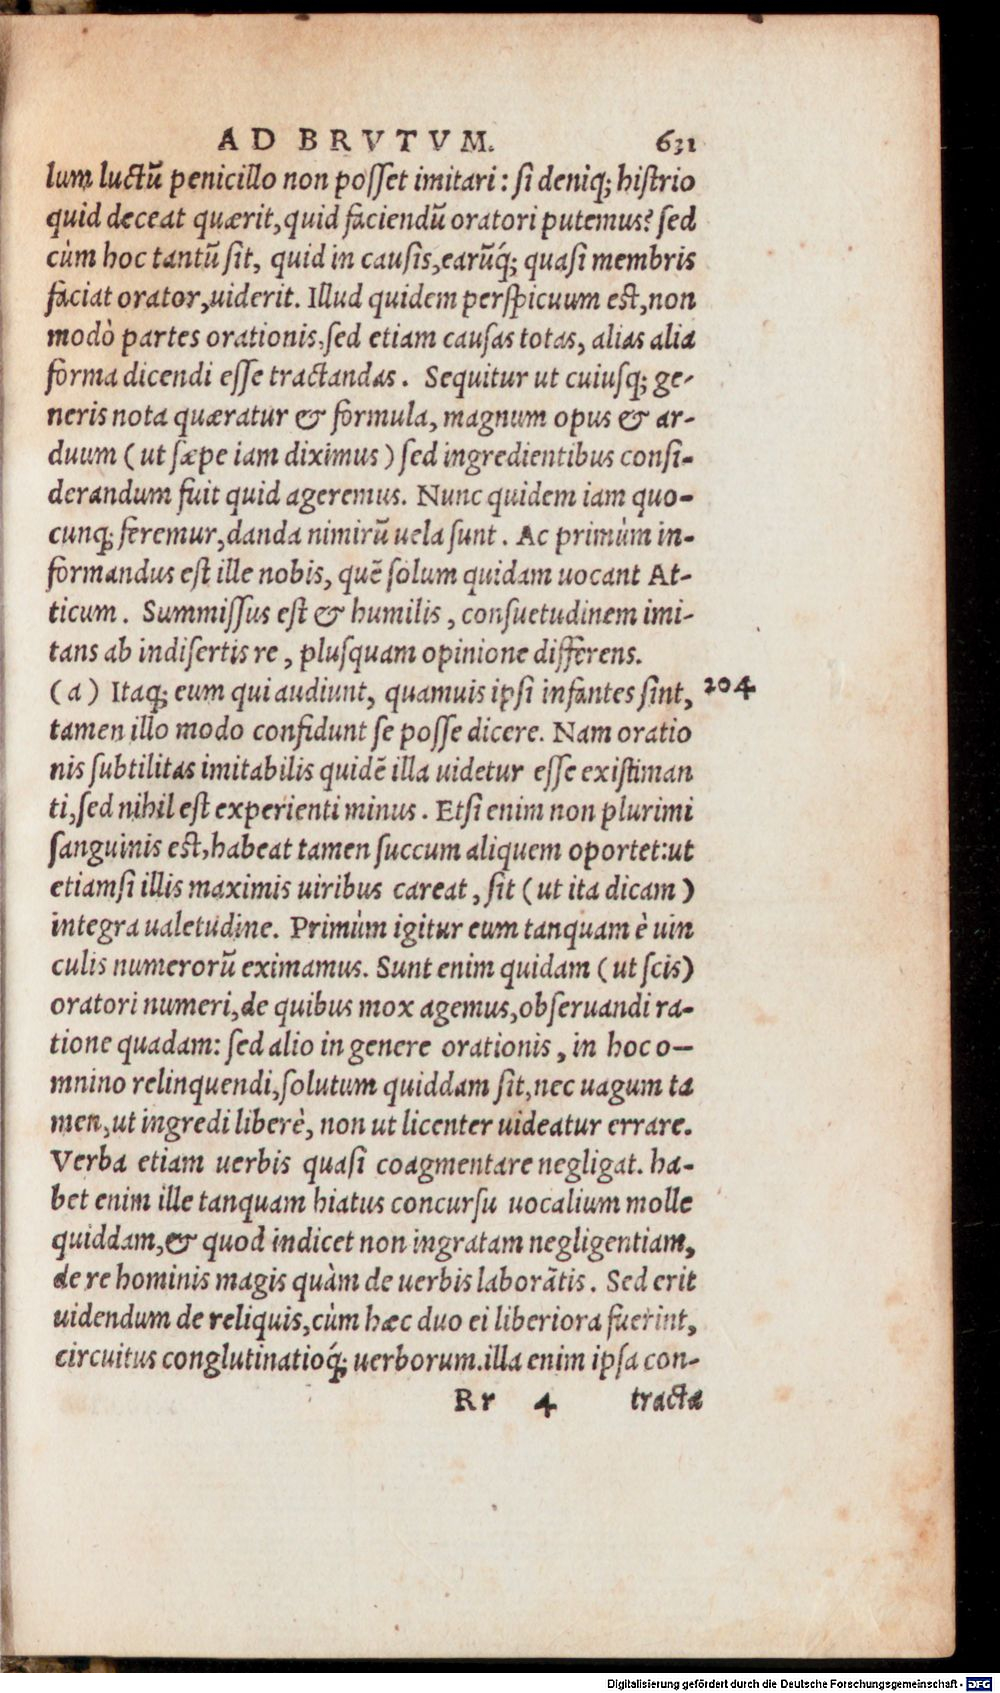 AD BRVTVM. 631
lum luctū penicillo non posset imitari: si deniq; histrio
quid deceat quærit, quid faciendū oratori putemus? sed
cùm hoc tantū sit, quid in causis, earūq́; quasi membris
faciat orator, uiderit. Illud quidem perspicuum est, non
modò partes orationis, sed etiam causas totas, alias alia
forma dicendi esse tractandas. Sequitur ut cuiusq; ge-
neris nota quæratur & formula, magnum opus & ar-
duum (ut sæpe iam diximus) sed ingredientibus consi-
derandum fuit quid ageremus. Nunc quidem iam quo-
cunq; feremur, danda nimirū uela sunt. Ac primùm in-
formandus est ille nobis, quē solum quidam uocant At-
ticum. Summissus est & humilis, consuetudinem imi-
tans ab indisertis re, plusquam opinione differens.
(a) Itaq; eum qui audiunt, quamuis ipsi infantes sint, 204
tamen illo modo confidunt se posse dicere. Nam oratio
nis subtilitas imitabilis quidē illa uidetur esse existiman
ti, sed nihil est experienti minus. Etsi enim non plurimi
sanguinis est, habeat tamen succum aliquem oportet: ut
etiamsi illis maximis uiribus careat, sit (ut ita dicam)
integra ualetudine. Primùm igitur eum tanquam è uin
culis numerorū eximamus. Sunt enim quidam (ut scis)
oratori numeri, de quibus mox agemus, obseruandi ra-
tione quadam: sed alio in genere orationis, in hoc o-
mnino relinquendi, solutum quiddam sit, nec uagum ta
men, ut ingredi liberè, non ut licenter uideatur errare.
Verba etiam uerbis quasi coagmentare negligat. ha-
bet enim ille tanquam hiatus concursu uocalium molle
quiddam, & quod indicet non ingratam negligentiam,
de re hominis magis quàm de uerbis laborātis. Sed erit
uidendum de reliquis, cùm hæc duo ei liberiora fuerint,
circuitus conglutinatioq́; uerborum. illa enim ipsa con-
Rr 4 tracta
Digitalisierung gefördert durch die Deutsche Forschungsgemeinschaft - DFG